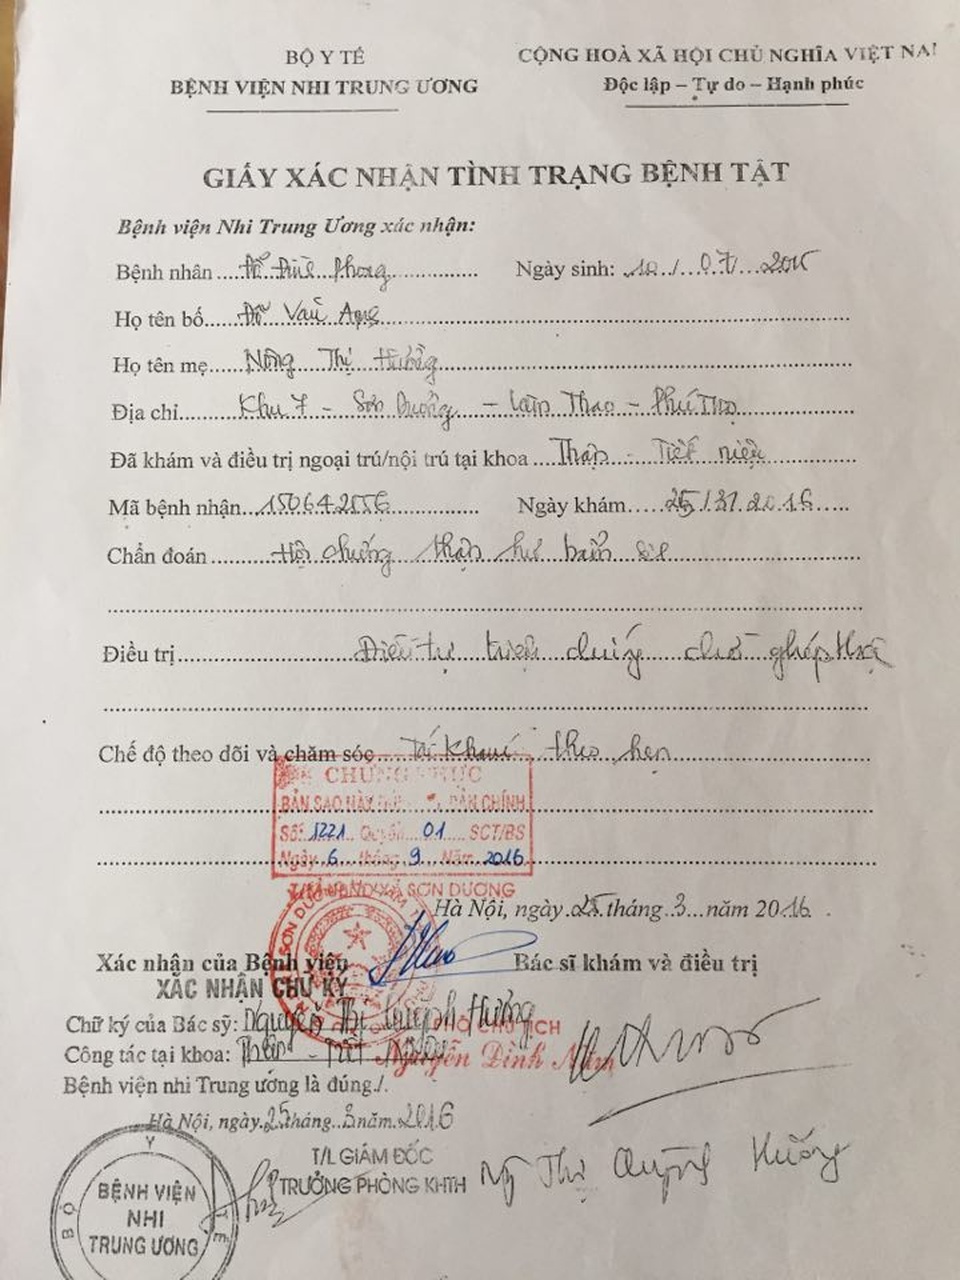 BỘ Y TẾ
BỆNH VIỆN NHI TRUNG ƯƠNG
CỘNG HOÀ XÃ HỘI CHỦ NGHĨA VIỆT NA
Độc lập – Tự do – Hạnh phúc
GIẤY XÁC NHẬN TÌNH TRẠNG BỆNH TẬT
Bệnh viện Nhi Trung Ương xác nhận:
Bệnh nhân Đỗ Phong Ngày sinh: 10/07 2015
Họ tên bố Đỗ Văn
Họ tên mẹ Nông Thị Hường
Địa chỉ Khu 7 - Sơn Dương - Lâm Thao - Phú Thọ
Đã khám và điều trị ngoại trú/nội trú tại khoa Thận - Tiết niệu
Mã bệnh nhân 150642556 Ngày khám 25/3/2016
Chẩn đoán Hội chứng thận hư bẩm sinh
Điều trị Điều trị triệu chứng chờ ghép thận
Chế độ theo dõi và chăm sóc Tái khám theo hẹn
CHỨNG THỰC
BẢN SAO NÀY BẢN CHÍNH
Số: 1221 Quyển 01 SCT/BS
Ngày 6 tháng 9 Năm 2016
T/M UBND XÃ SƠN DƯƠNG
Hà Nội, ngày 25 tháng 3 năm 2016
Xác nhận của Bệnh viện Bác sĩ khám và điều trị
XÁC NHẬN CHỮ KÝ
Chữ ký của Bác sỹ: Nguyễn Thị Quỳnh Hương
PHÓ CHỦ TỊCH
Công tác tại khoa: Thận - Tiết niệu
Nguyễn Đình Năm
Bệnh viện nhi Trung ương là đúng./.
Hà Nội, ngày 25 tháng 3 năm 2016
T/L GIÁM ĐỐC
TRƯỞNG PHÒNG KHTH
Ng Thị Quỳnh Hương
BỘ Y
BỆNH VIỆN
NHI
TRUNG ƯƠNG